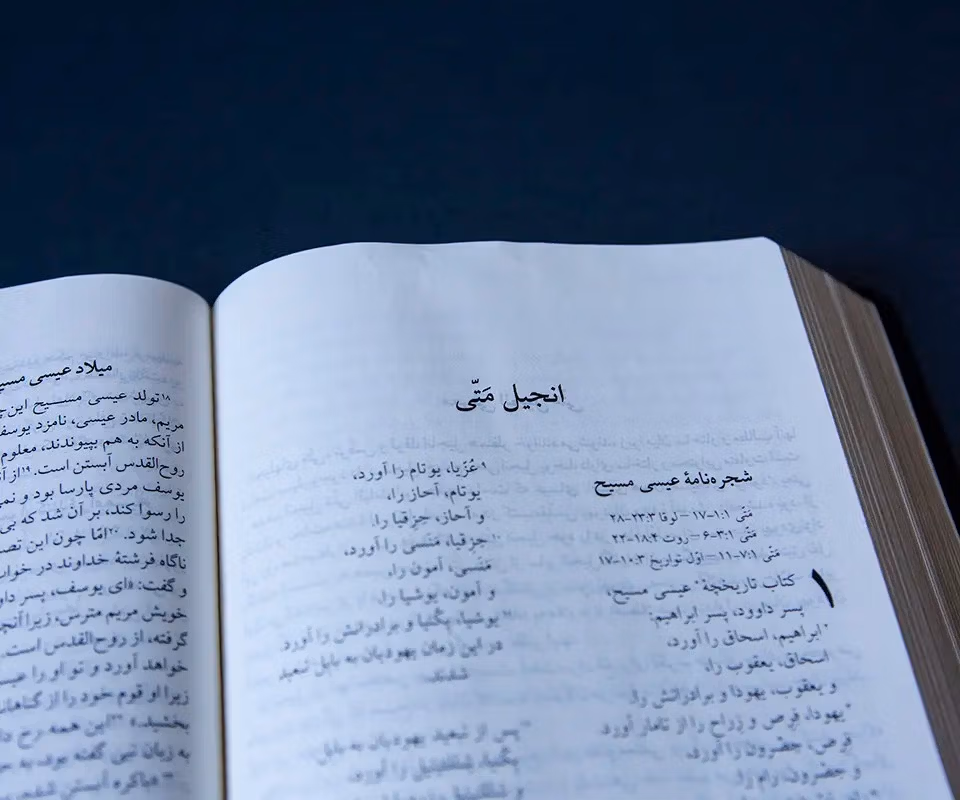 انجیل مَتّی
شجره‌نامهٔ عیسی مسیح
مَتّی ۱:۱-۱۷ – لوقا ۲۳:۳-۲۸
مَتّی ۳:۱-۶ – روت ۱۸:۴-۲۲
مَتّی ۷:۱-۱۱ – اوّل تواریخ ۱۰:۳-۱۷
۱ کتاب تاریخچهٔ عیسی مسیح،
پسر داوود، پسر ابراهیم:
۲ابراهیم، اسحاق را آورد،
اسحاق، یعقوب را،
و یعقوب، یهودا و برادرانش را.
۳یهودا، فِرِص و زِراح را از تامار آورد.
فِرِص، حِصْرون را آورد،
و حِصْرون، رام را.
۹عُزّیا، یوتام را آورد،
یوتام، آحاز را،
و آحاز، حِزِقیا را.
۱۰حِزِقیا، مَنَسی را آورد،
مَنَسی، آمون را،
و آمون، یوشیا را.
۱۱یوشیا، یِکُنیا و برادرانش را آورد.
در این زمان یهودیان به بابل تبعید
شدند.
۱۲پس از تبعید یهودیان به بابل:
یِکُنیا، شِئَلتیئیل را آورد،
میلاد عیسی
۱۸تولد عیسی مسیح
مریم، مادر عیسی، نامزد
از آنکه به هم بپیوندند، معلوم
روح‌القدس آبستن است. ۱۹از
یوسف مردی پارسا بود و
را رسوا کند، بر آن شد که
جدا شود. ۲۰امّا چون این
ناگاه فرشتهٔ خداوند در
و گفت: «ای یوسف، پسر
خویش مریم مترس، زیرا
گرفته، از روح‌القدس است.
خواهد آورد و تو او را
زیرا او قوم خود را از
بخشید.» ۲۲این همه رخ
به زبان نبی گفته بود، به
۲۳«باکره آبستن شده،